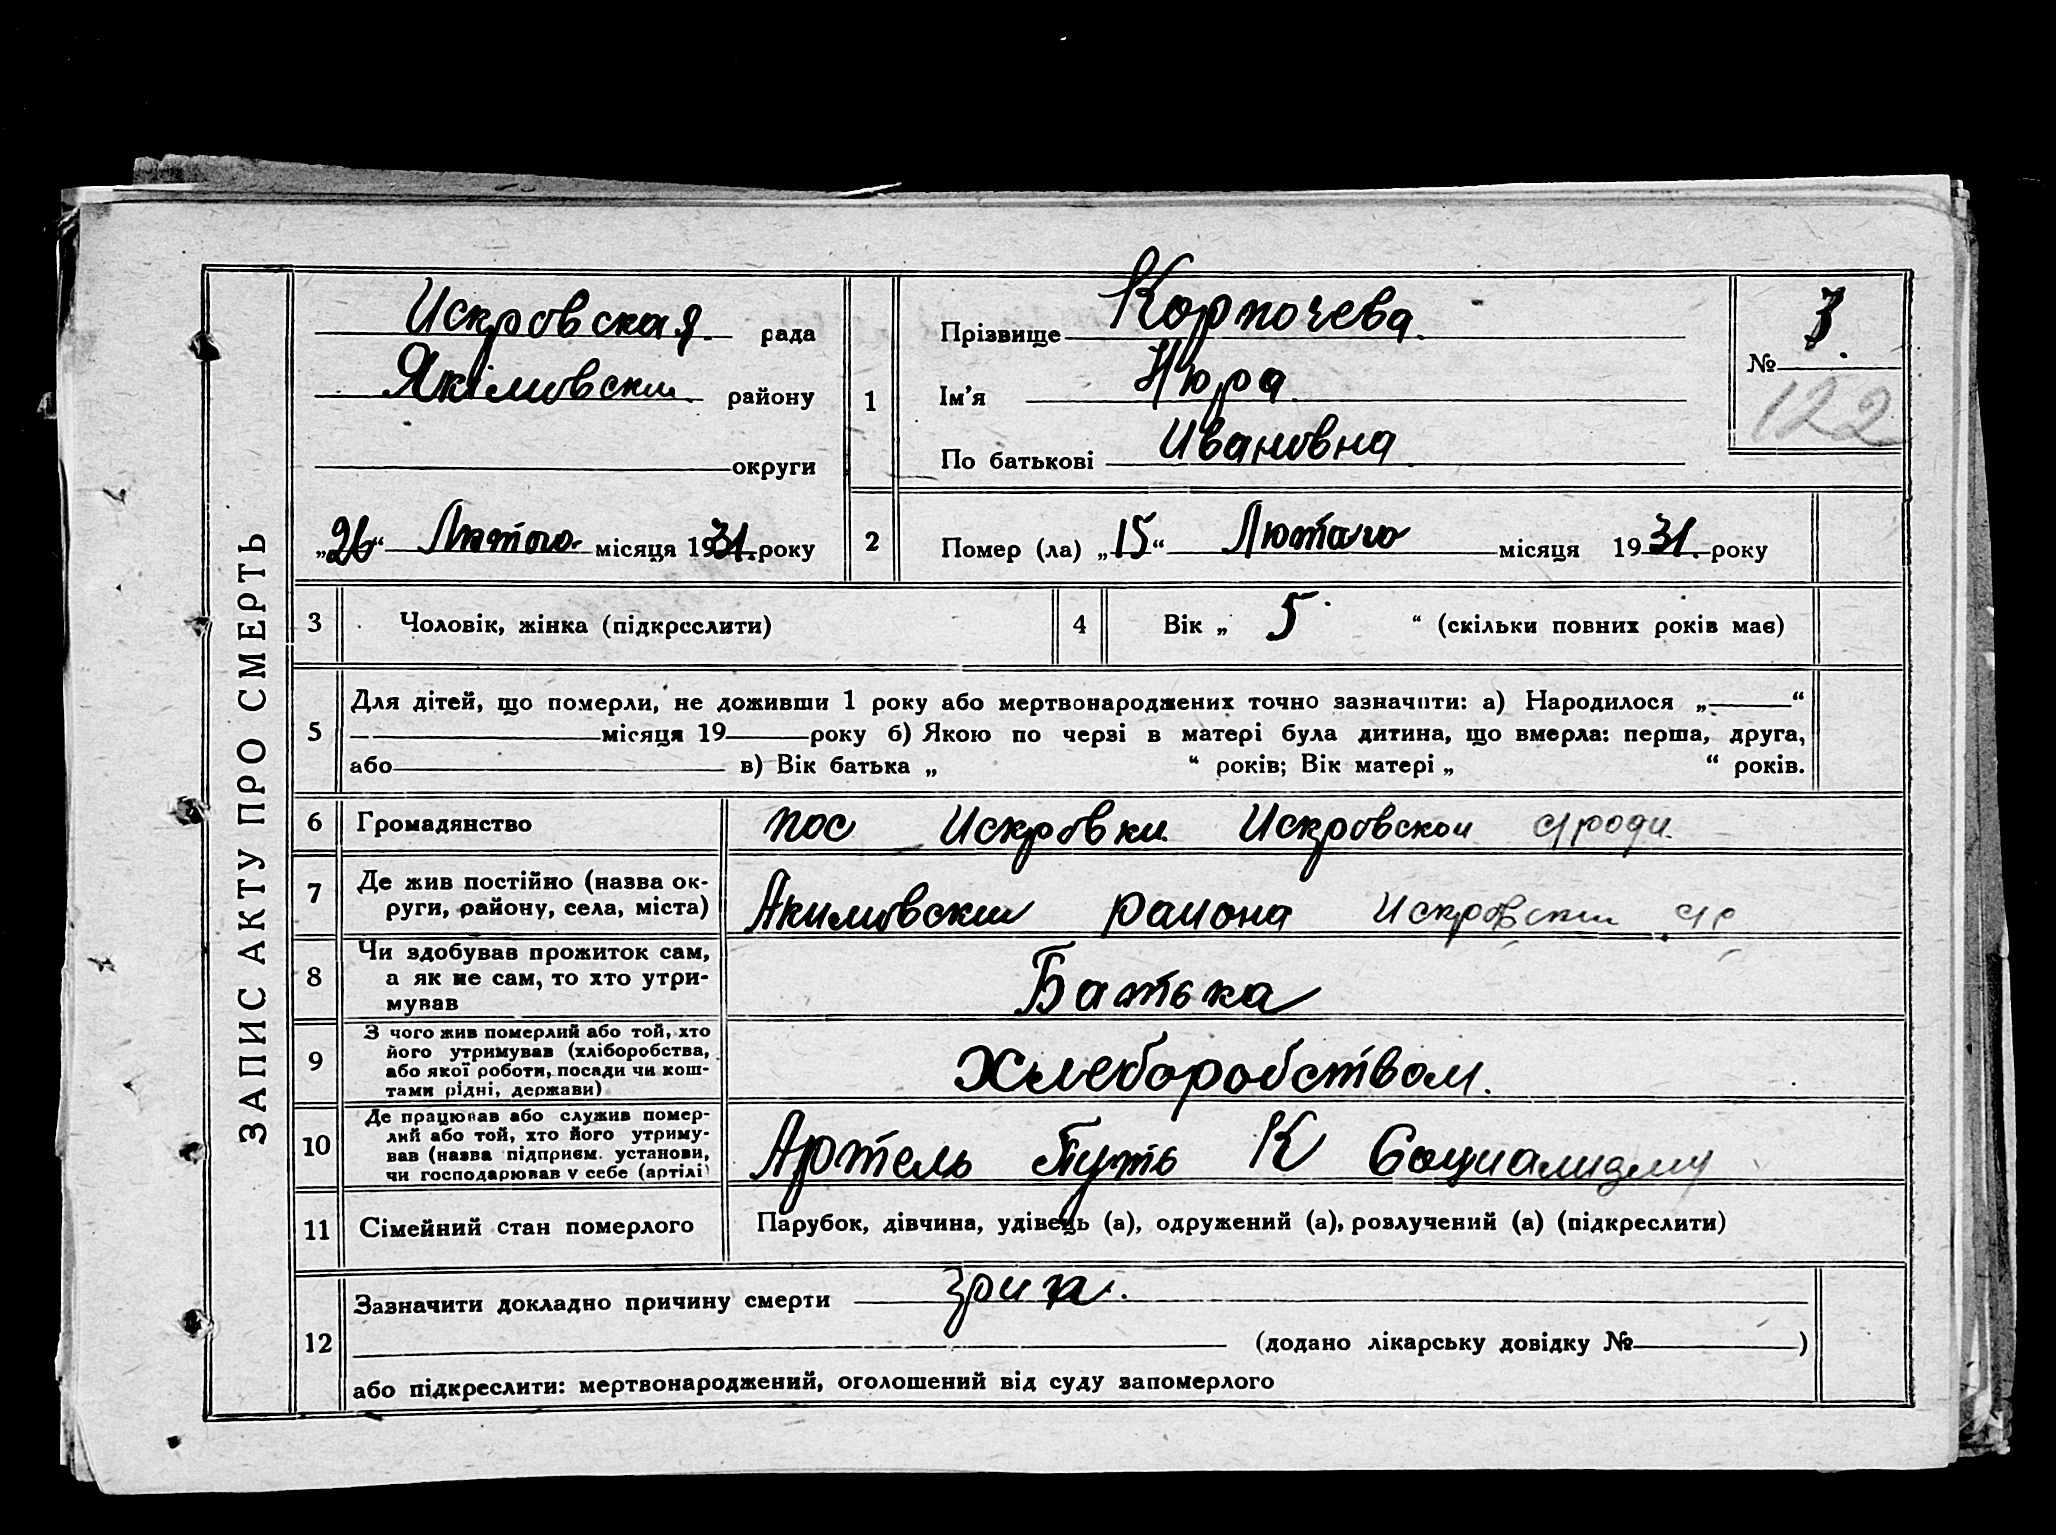 ЗАПИС АКТУ ПРО СМЕРТЬ
Искровская рада
Якімовски району
округи
„26“ Лютого місяця 1931. року
1
Прізвище Корпочева
Ім'я Нюра
По батькові Ивановна
№ 3.
122
2
Помер (ла) „15“ Лютаго місяця 1931. року
3 Чоловік, жінка (підкреслити)
4 Вік „ 5 “ (скільки повних років має)
5
Для дітей, що померли, не доживши 1 року або мертвонароджених точно зазначити: а) Народилося „ “
місяця 19 року б) Якою по черзі в матері була дитина, що вмерла: перша, друга,
або в) Вік батька „ “ років; Вік матері „ “ років.
6 Громадянство пос Искровки Искровскои с/роди
7 Де жив постійно (назва ок-
руги, району, села, міста)
Акимовский раиона Искровски с/с
8 Чи здобував прожиток сам,
а як не сам, то хто утри-
мував
Батька
9 З чого жив померлий або той, хто
його утримував (хліборобства,
або якої роботи, посади чи кош-
тами рідні, держави)
Хлеборобством.
10 Де працював або служив помер-
лий або той, хто його утриму-
вав (назва підприєм. установи,
чи господарював у себе (артілі)
Артель Путь К Социализму
11 Сімейний стан померлого Парубок, дівчина, удівець (а), одружений (а), розлучений (а) (підкреслити)
12
Зазначити докладно причину смерти грип.
(додано лікарську довідку № )
або підкреслити: мертвонароджений, оголошений від суду запомерлого